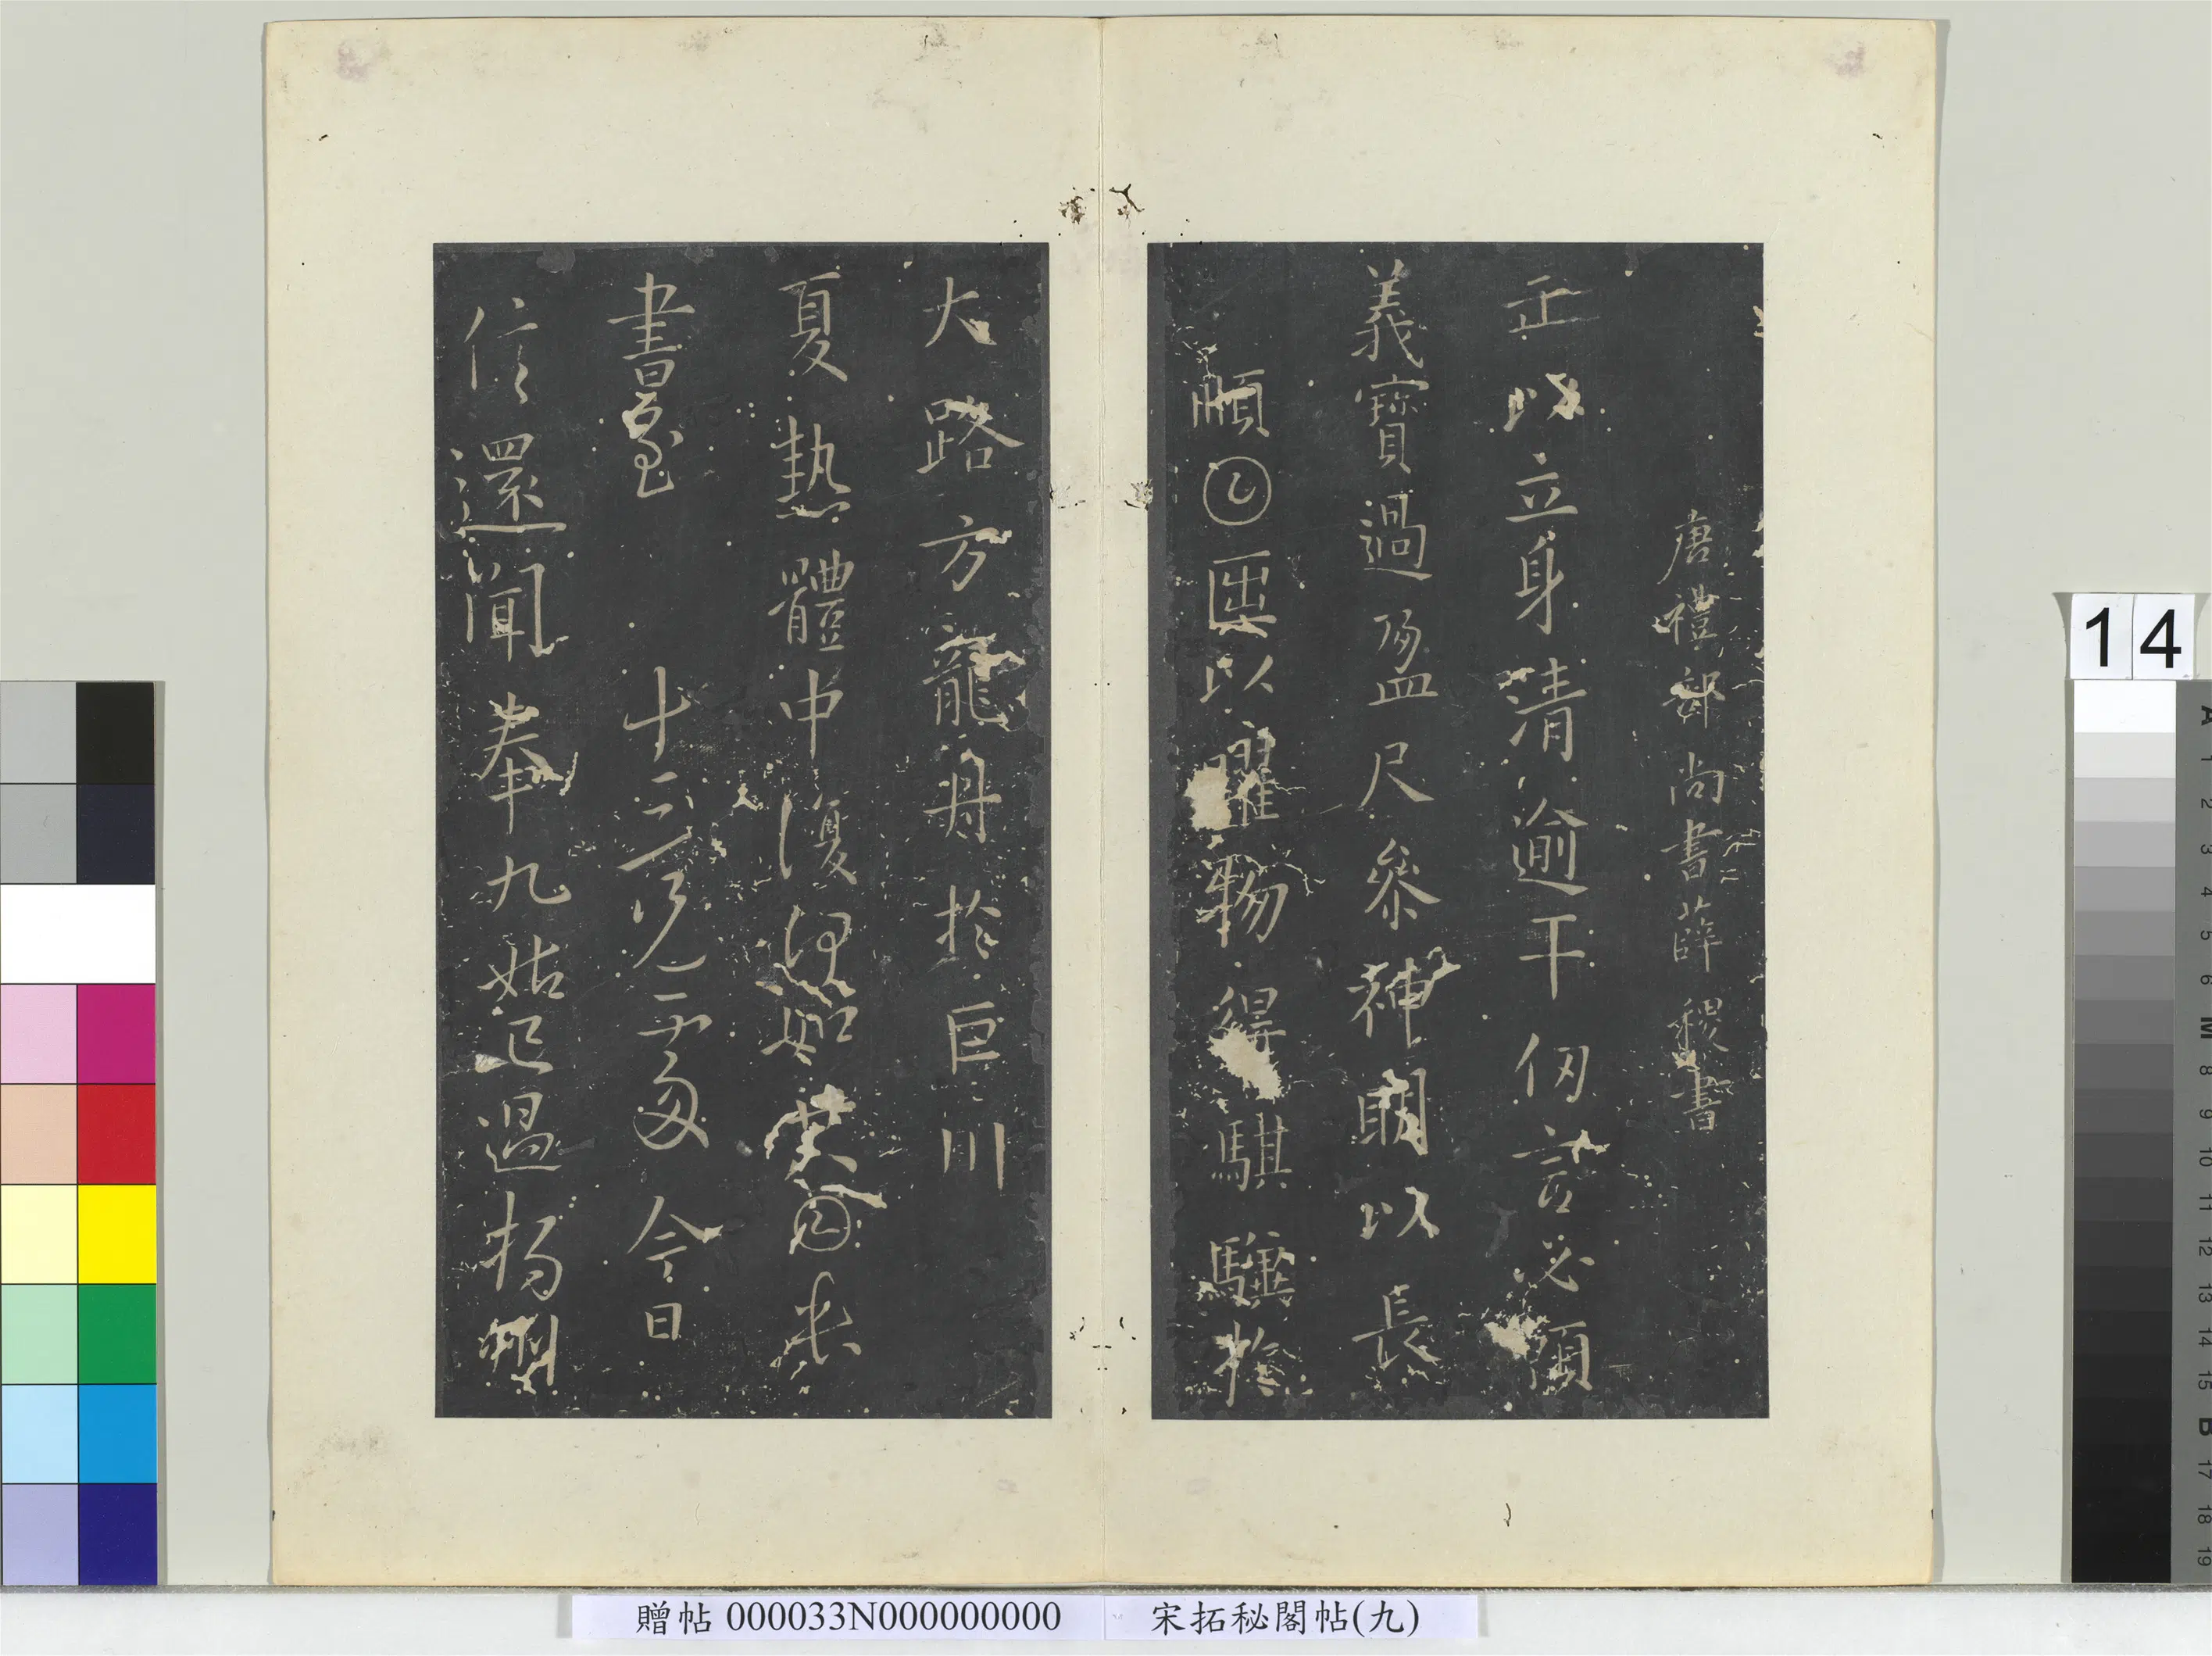 唐禮部尚書薛稷書
正以立身清逾千仞言必
義寶過盈尺參神間以長
順𡆠𠥱以耀物得騏驥於
大路方龍舟於巨川
夏熱體中復如𡆠
書至十今日
信還聞奉九姑已過楊州
14
贈帖 000033N000000000 宋拓秘閣帖(九)
A 1 2 3 4 5 6 M 8 9 10 11 12 13 14 15 B 17 18 19